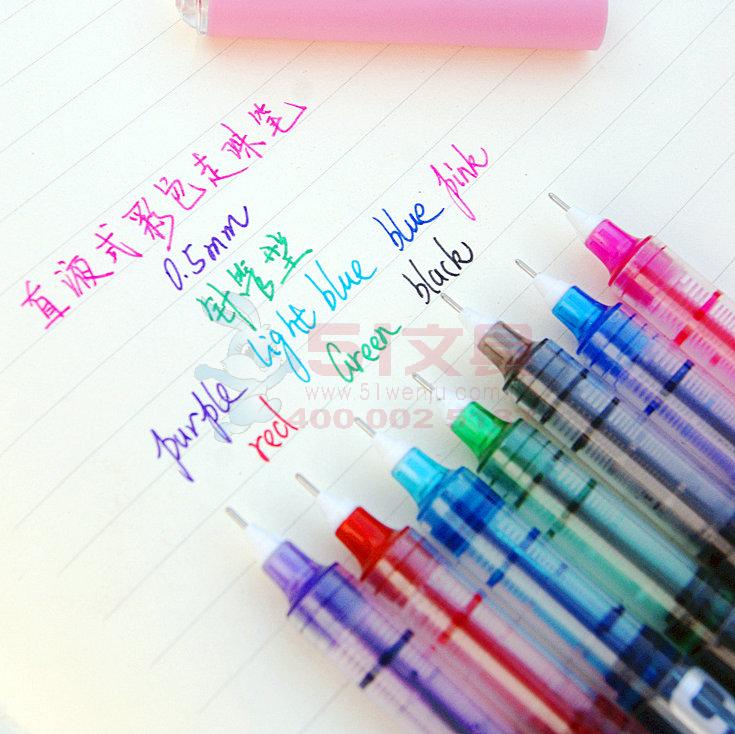 直液式彩色走珠笔
0.5mm
针管型
purple light blue blue pink
red Green black
51文具
www.51wenju.com
400.002